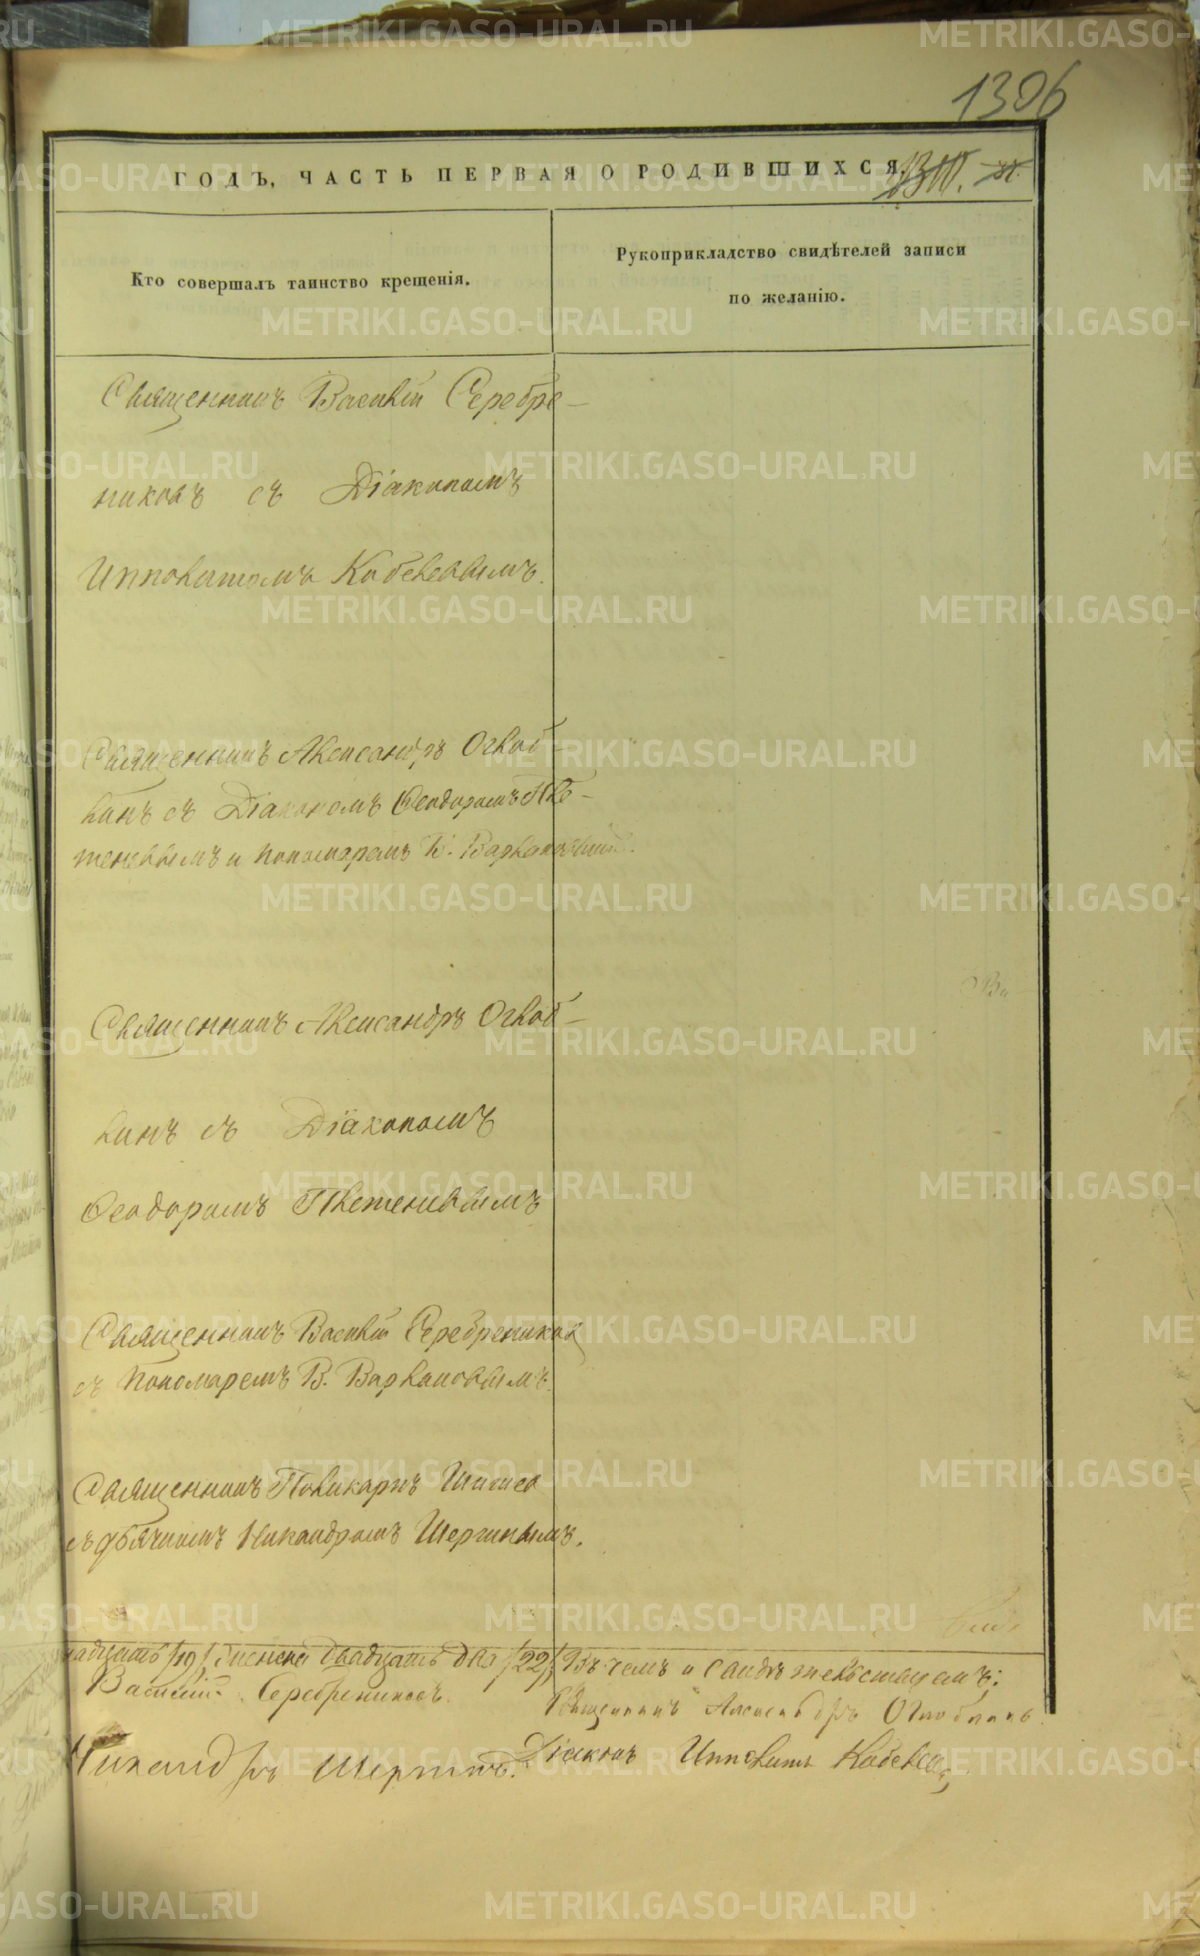 1306
ГОДЪ, ЧАСТЬ ПЕРВАЯ О РОДИВШИХСЯ.
Кто совершалъ таинство крещенія.
Рукоприкладство свидѣтелей записи
по желанію.
Священникъ Василій Серебре-
никовъ съ Діакономъ
Ипполитомъ Кобелевымъ.
Священникъ Александръ Оглоб-
линъ съ Діакономъ Ѳеодоромъ Пле-
теневымъ и пономаремъ В. Варлаковымъ.
Священникъ Александръ Оглоб-
линъ съ Діакономъ
Ѳеодоромъ Плетеневымъ
Священникъ Василій Серебрениковъ
съ Пономаремъ В. Варлаковымъ.
Священникъ Поликарпъ
съ дьячкомъ Никандромъ Шергинымъ.
надцать /19/, женска двадцать два /22/. Въ чемъ и свидѣтельствуемъ:
Василій Серебрениковъ.
Священникъ Александръ Оглоблинъ.
Никандръ Шергинъ.
Діаконъ Ипполитъ Кобелевъ
METRIKI.GASO-URAL.RU